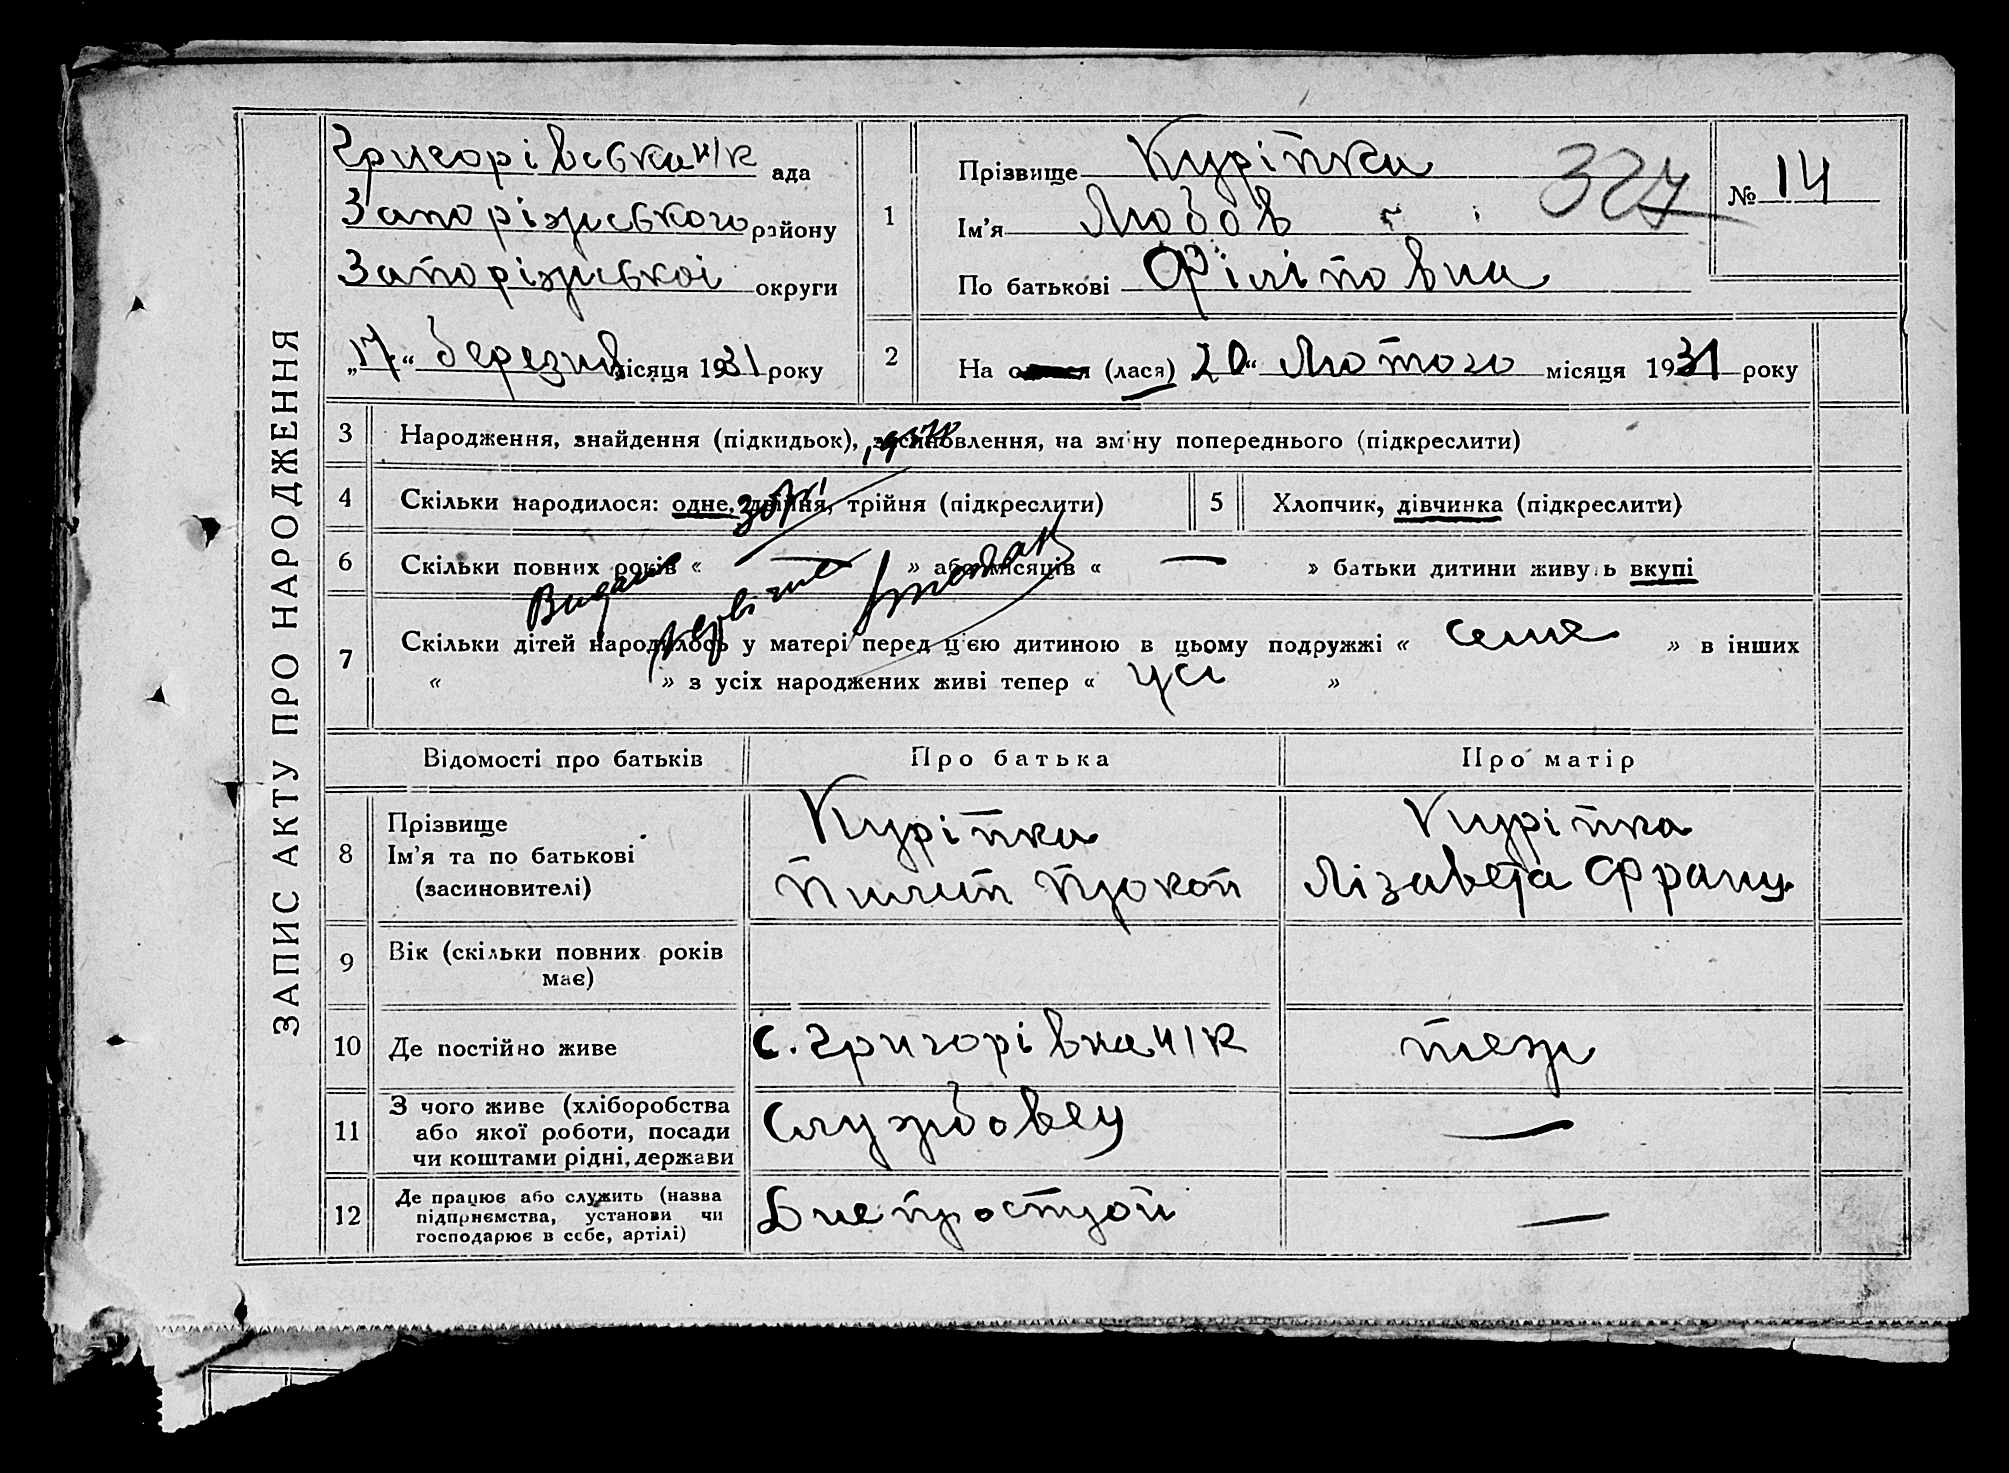 ЗАПИС АКТУ ПРО НАРОДЖЕННЯ
Григорівська н/к ада
Запоріжського району
Запоріжської округи
„17“ березня місяця 1931 року
1
Прізвище Куріпка
Ім'я Любов
По батькові Філіповна
327
№ 14
2
На (лася) 20“ Лютого місяця 1931 року
3 Народження, знайдення (підкидьок), засиновлення, на зміну попереднього (підкреслити)
4 Скільки народилося: одне, двійня, трійня (підкреслити)
5 Хлопчик, дівчинка (підкреслити)
6 Скільки повних років « — » або місяців « — » батьки дитини живуть вкупі
Видане
7 Скільки дітей народилось у матері перед цією дитиною в цьому подружжі « семе » в інших
« » з усіх народжених живі тепер « усі »
Відомості про батьків Про батька Про матір
8 Прізвище
Ім'я та по батькові
(засиновителі)
Куріпка
Пилип Прокоп
Куріпка
Лізавета Франц.
9 Вік (скільки повних років
має)
10 Де постійно живе с. Григорівка н/к теж
11 З чого живе (хліборобства
або якої роботи, посади
чи коштами рідні, держави
Службовец —
12 Де працює або служить (назва
підприємства, установи чи
господарює в себе, артілі)
Днепрострой —